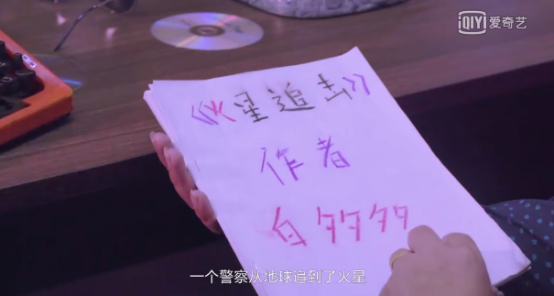 iQIYI 爱奇艺
《火星追击》
作者
白多多
一个警察从池球追到了火星